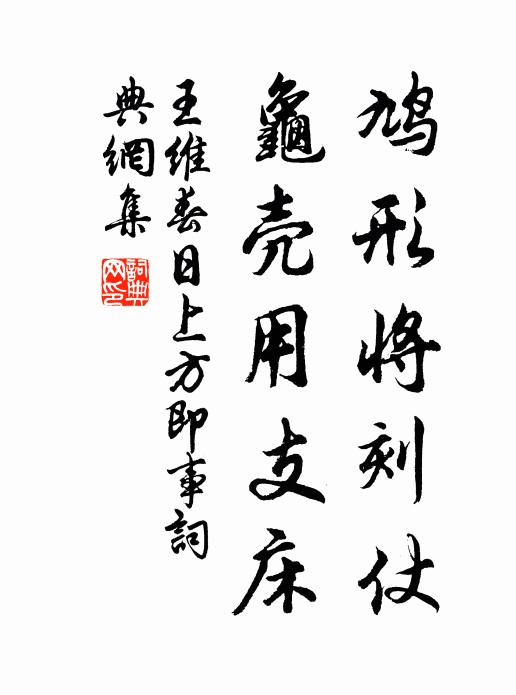 鳩形將刻仗
龜壳用支床
王維春日上方即事詞
典網集
詞典网印